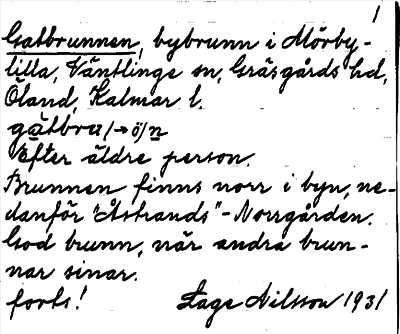 1
Gatbrunnen, bybrunn i Mörby-
lilla, Ventlinge sn, Gräsgårds hd,
Öland, Kalmar l.
Efter äldre person.
Brunnen finns norr i byn, ne-
danför "Åstrands"-Norrgården.
God brunn, när andra brun-
nar sinar.
forts! Tage Nilsson 1931